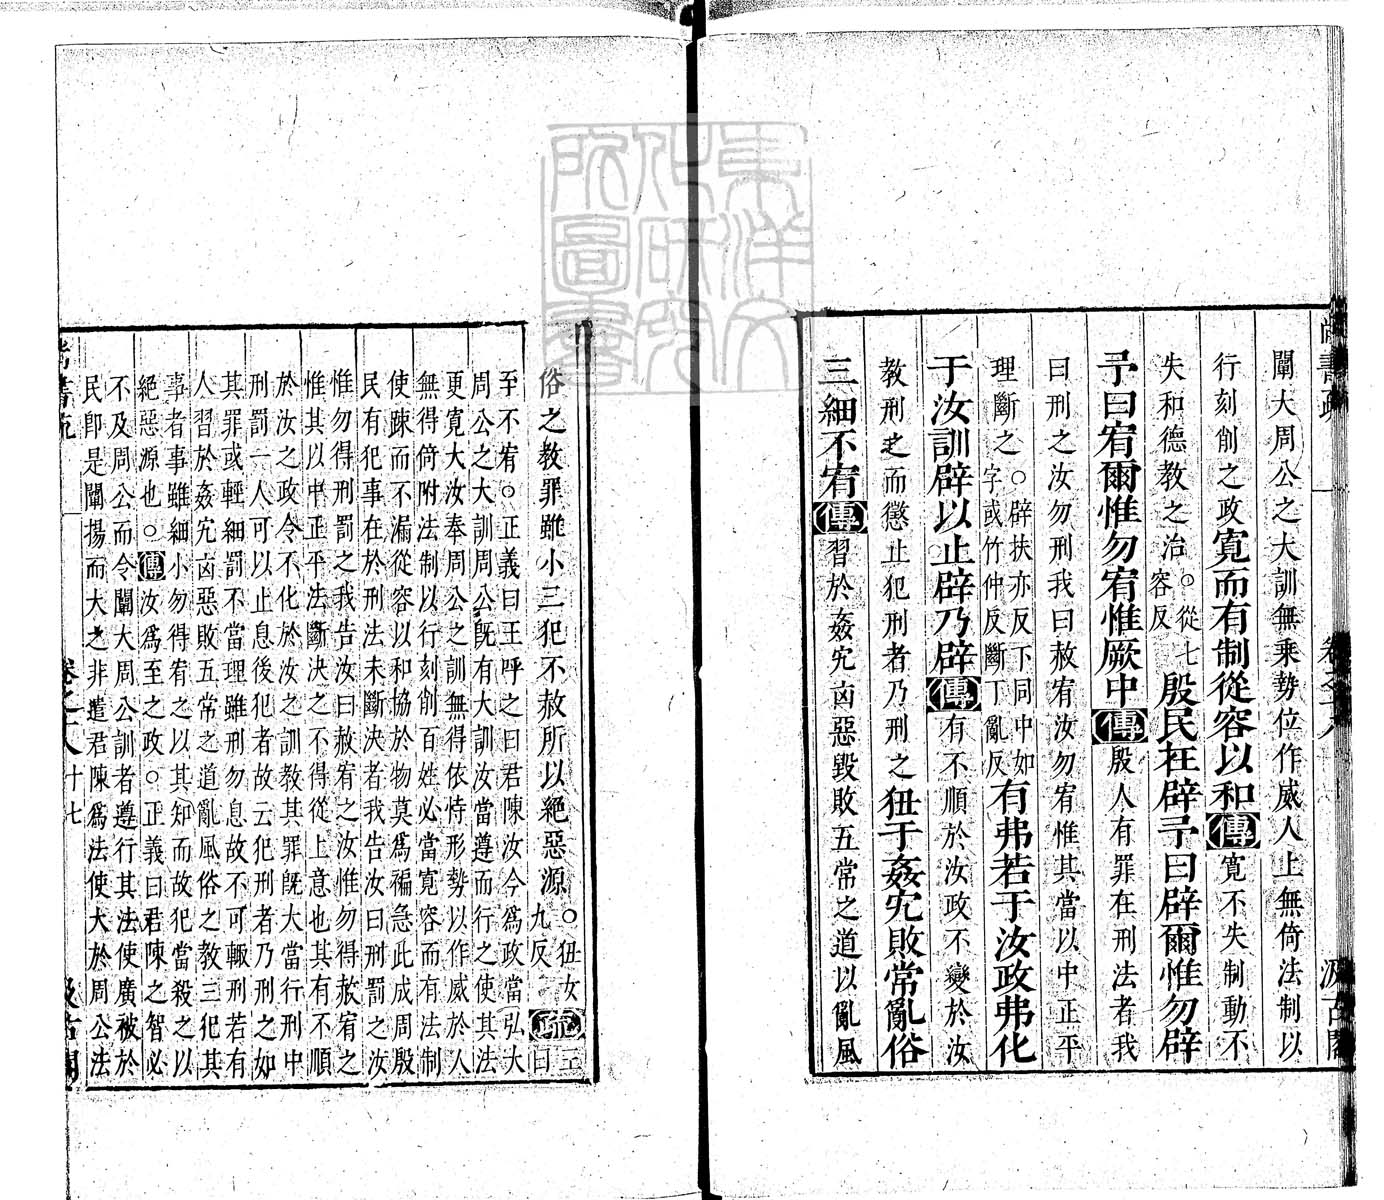 尚書疏
卷之十八
汲古閣
闡大周公之大訓無乗勢位作威人上無倚法制以
行刻削之政寛而有制從容以和傳寬不失制動不
失和德教之治○從七容反殷民在辟予曰辟爾惟勿辟
予曰宥爾惟勿宥惟厥中傳殷人有罪在刑法者我
曰刑之汝勿刑我曰赦宥汝勿宥惟其當以中正平
理斷之○辟扶亦反下同中如字或竹仲反斷丁亂反有弗若于汝政弗化
于汝訓辟以止辟乃辟傳有不順於汝政不變於汝
教刑之而懲止犯刑者乃刑之狃于姦宄敗常亂俗
三細不宥傳習於姦宄凶惡毀敗五常之道以亂風
俗之教罪雖小三犯不赦所以絕惡源○狃女九反疏王曰
至不宥○正義曰王呼之曰君陳汝今爲政當弘大
周公之大訓周公旣有大訓汝當遵而行之使其法
更寛大汝奉周公之訓無得依恃形勢以作威於人
無得倚附法制以行刻削百姓必當寬容而有法制
使疎而不漏從容以和協於物莫爲褊急此成周殷
民有犯事在於刑法未斷決者我告汝曰刑罰之汝
惟勿得刑罰之我告汝曰赦宥之汝惟勿得赦宥之
惟其以中正平法斷決之不得從上意也其有不順
於汝之政令不化於汝之訓教其罪旣大當行刑中
刑罰一人可以止息後犯者故云犯刑者乃刑之如
其罪或輕細罰不當理雖刑勿息故不可輒刑若有
人習於姦宄凶惡敗五常之道亂風俗之教三犯其
事者事雖細小勿得宥之以其知而故犯當殺之以
絕惡源也○傳汝爲至之政○正義曰君陳之智必
不及周公而令闡大周公訓者遵行其法使廣被於
民卽是闡揚而大之非遣君陳爲法使大於周公法
尚書疏
卷之十八
十七
汲古閣
東洋文化研究所圖書